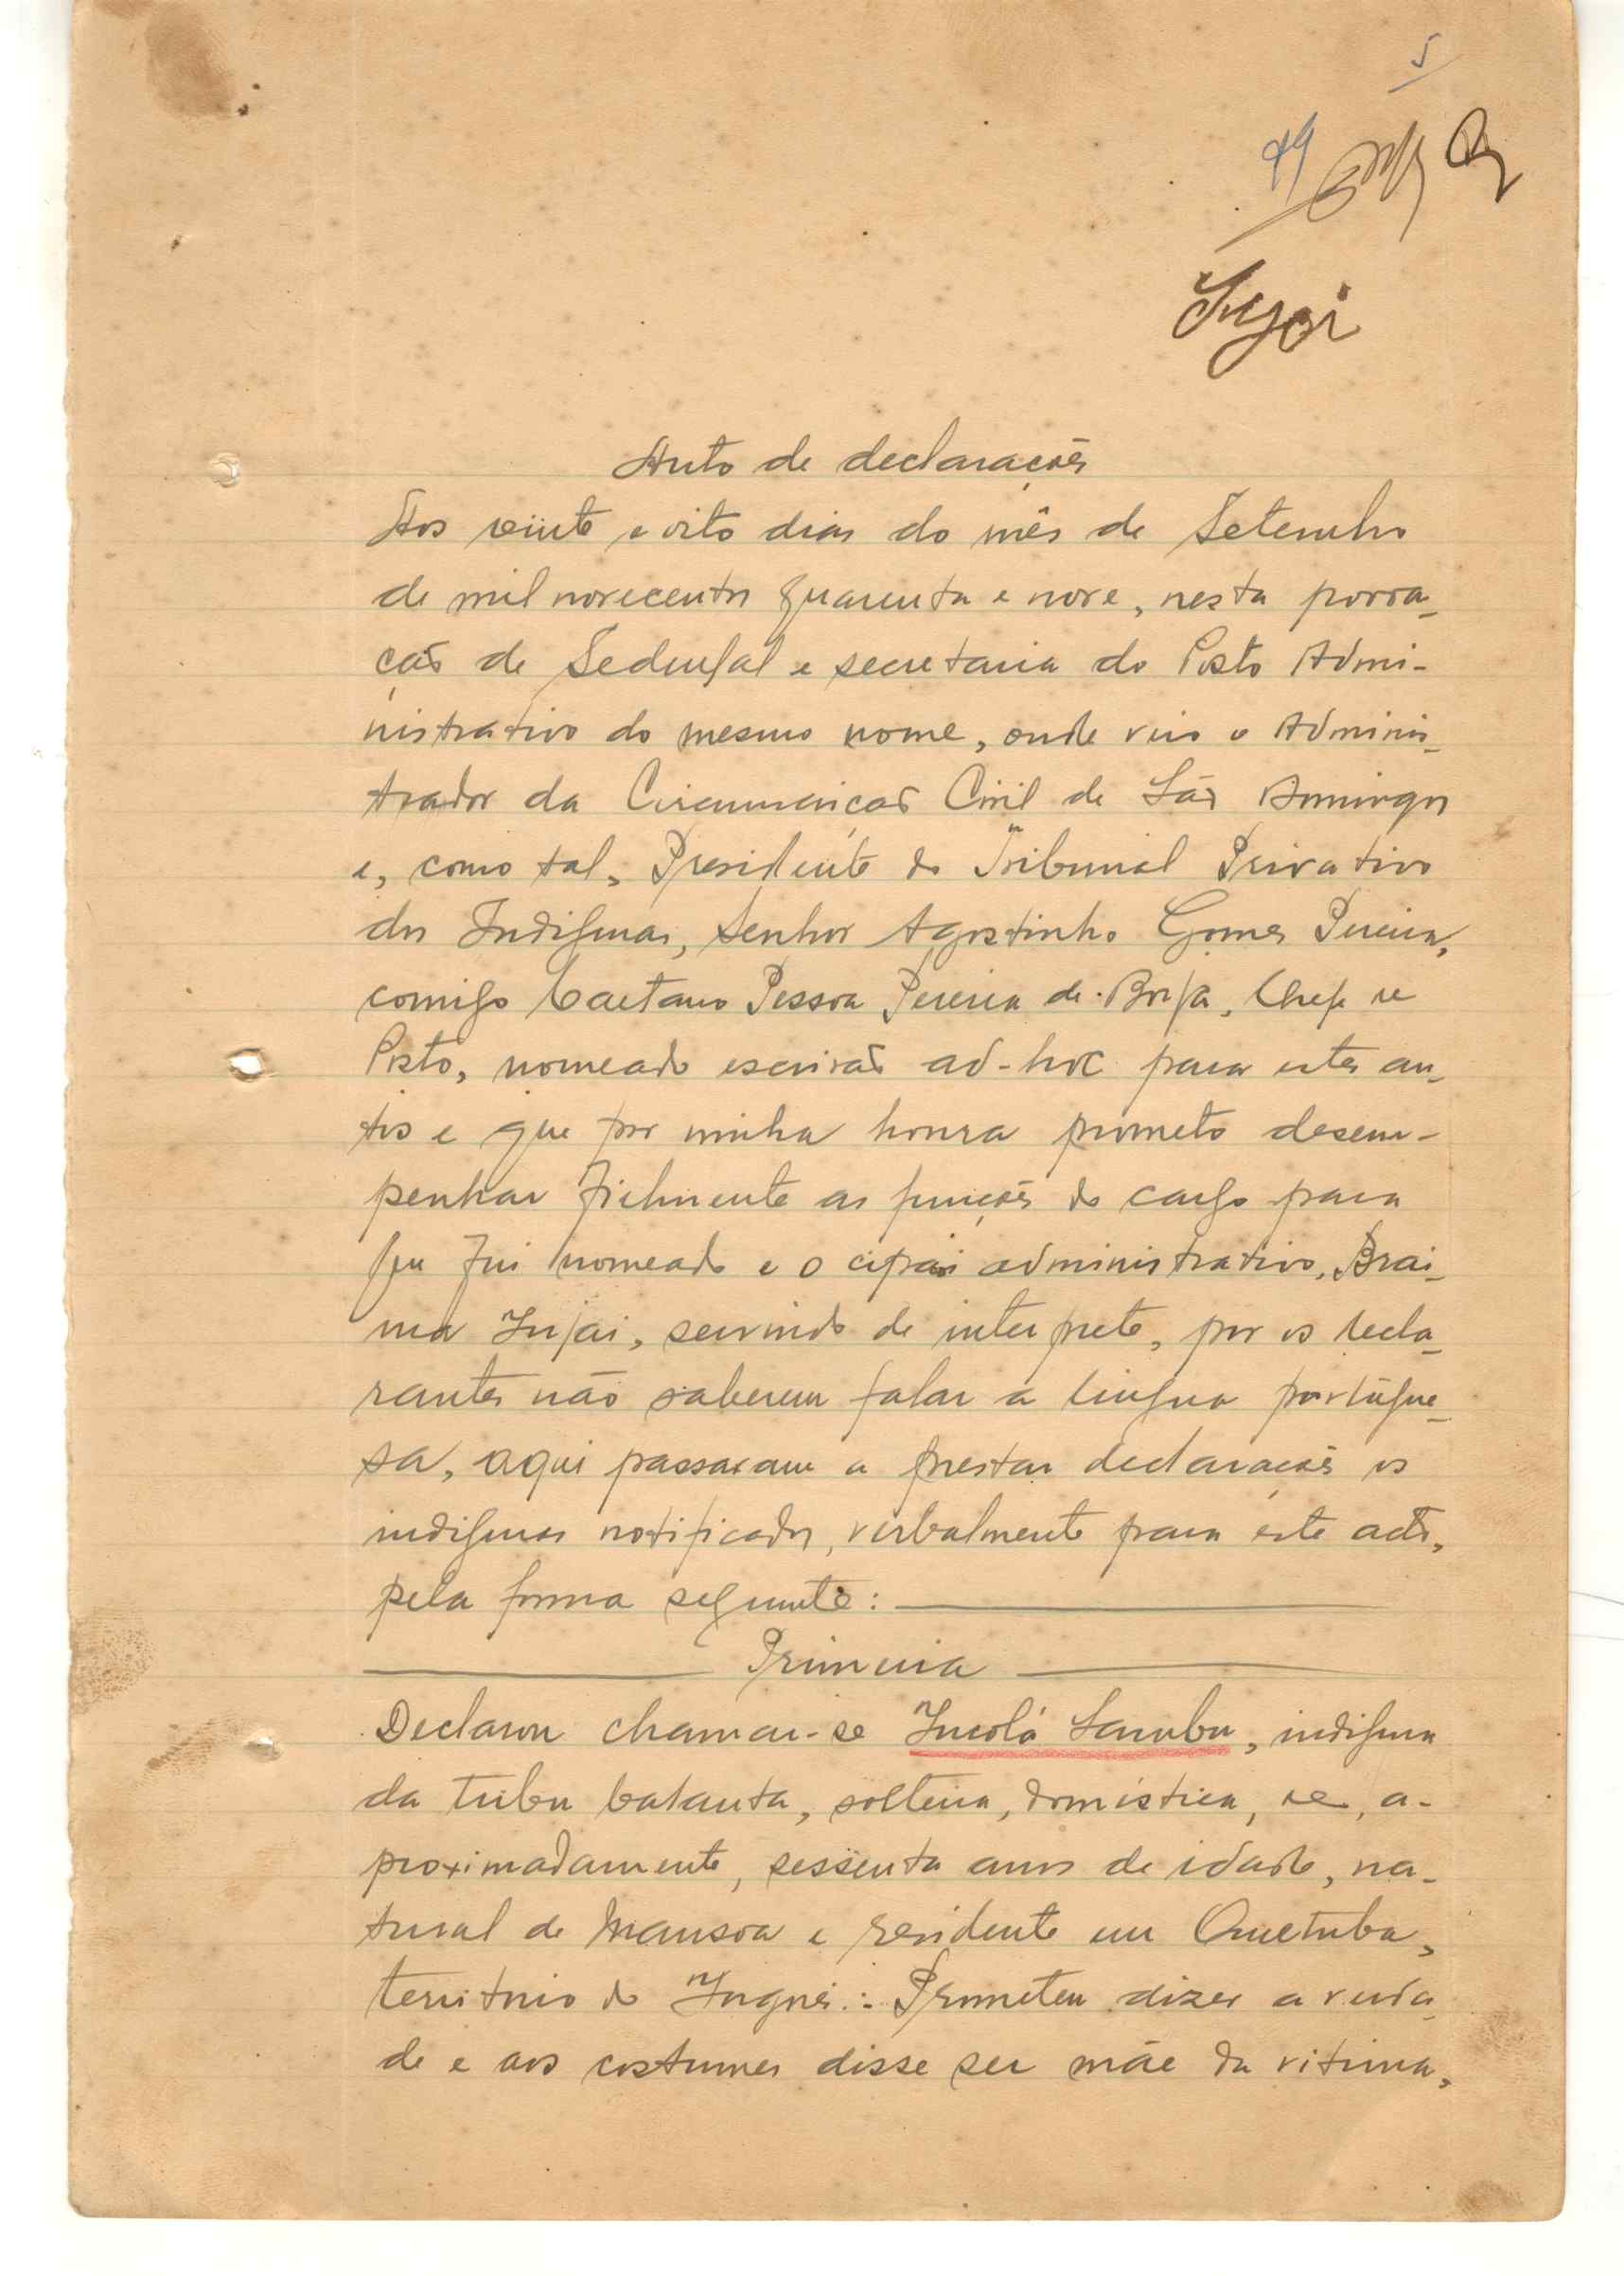 5
49
Injai
Auto de declarações
Aos vinte e oito dias do mês de Setembro
de mil novecentos quarenta e nove, nesta povoa-
ção de Sedengal e secretaria do Posto Admi-
nistrativo do mesmo nome, onde veio o Adminis-
trador da Circunscrição Civil de São Domingos
e, como tal, Presidente do Tribunal Privativo
dos Indígenas, senhor Agostinho Gomes Pereira,
comigo Caetano Pessoa Pereira de Borja, Chefe de
Posto, nomeado escrivão ad-hoc para estes au-
tos e que por minha honra prometo desem-
penhar fielmente as funções do cargo para
que fui nomeado e o cipai administrativo, Brai-
ma Injai, servindo de interprete, por os decla-
rantes não saberem falar a lingua portugue-
sa, aqui passaram a prestar declarações os
indigenas notificados, verbalmente para este acto,
pela forma seguinte:
Primeira
Declarou chamar-se Incolá Sambu, indigena
da tribu balanta, solteira, doméstica, de, a-
proximadamente, sessenta anos de idade, na-
tural de Mansoa e residente em Quetuba,
territorio de Ingoré.: Prometeu dizer a verda-
de e aos costumes disse ser mãe da vitima,